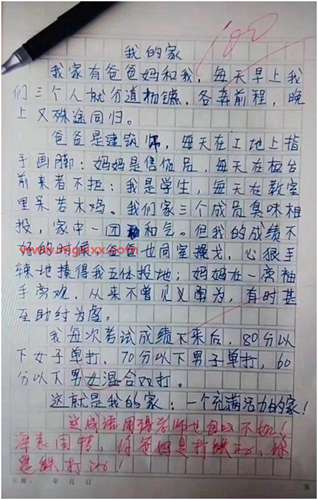 100
我的家
我家有爸爸妈和我，每天早上我
们三个人就分道扬镳，各奔前程，晚
上又殊途同归。
爸爸是建筑师，每天在工地上指
手画脚；妈妈是售货员，每天在柜台
前来者不拒；我是学生，每天在教室
里呆若木鸡。我们家三个成员臭味相
投，家中一团和气。但我的成绩不
好的时候，爸爸也同室操戈，心狠手
辣地揍得我五体投地；妈妈在一旁袖
手旁观，从来不曾见义勇为，有时甚
至助纣为虐。
我每次考试成绩下来后，80分以
下女子单打，70分以下男子单打，60
分以下男女混合双打。
这就是我的家：一个充满活力的家！
这成语用得